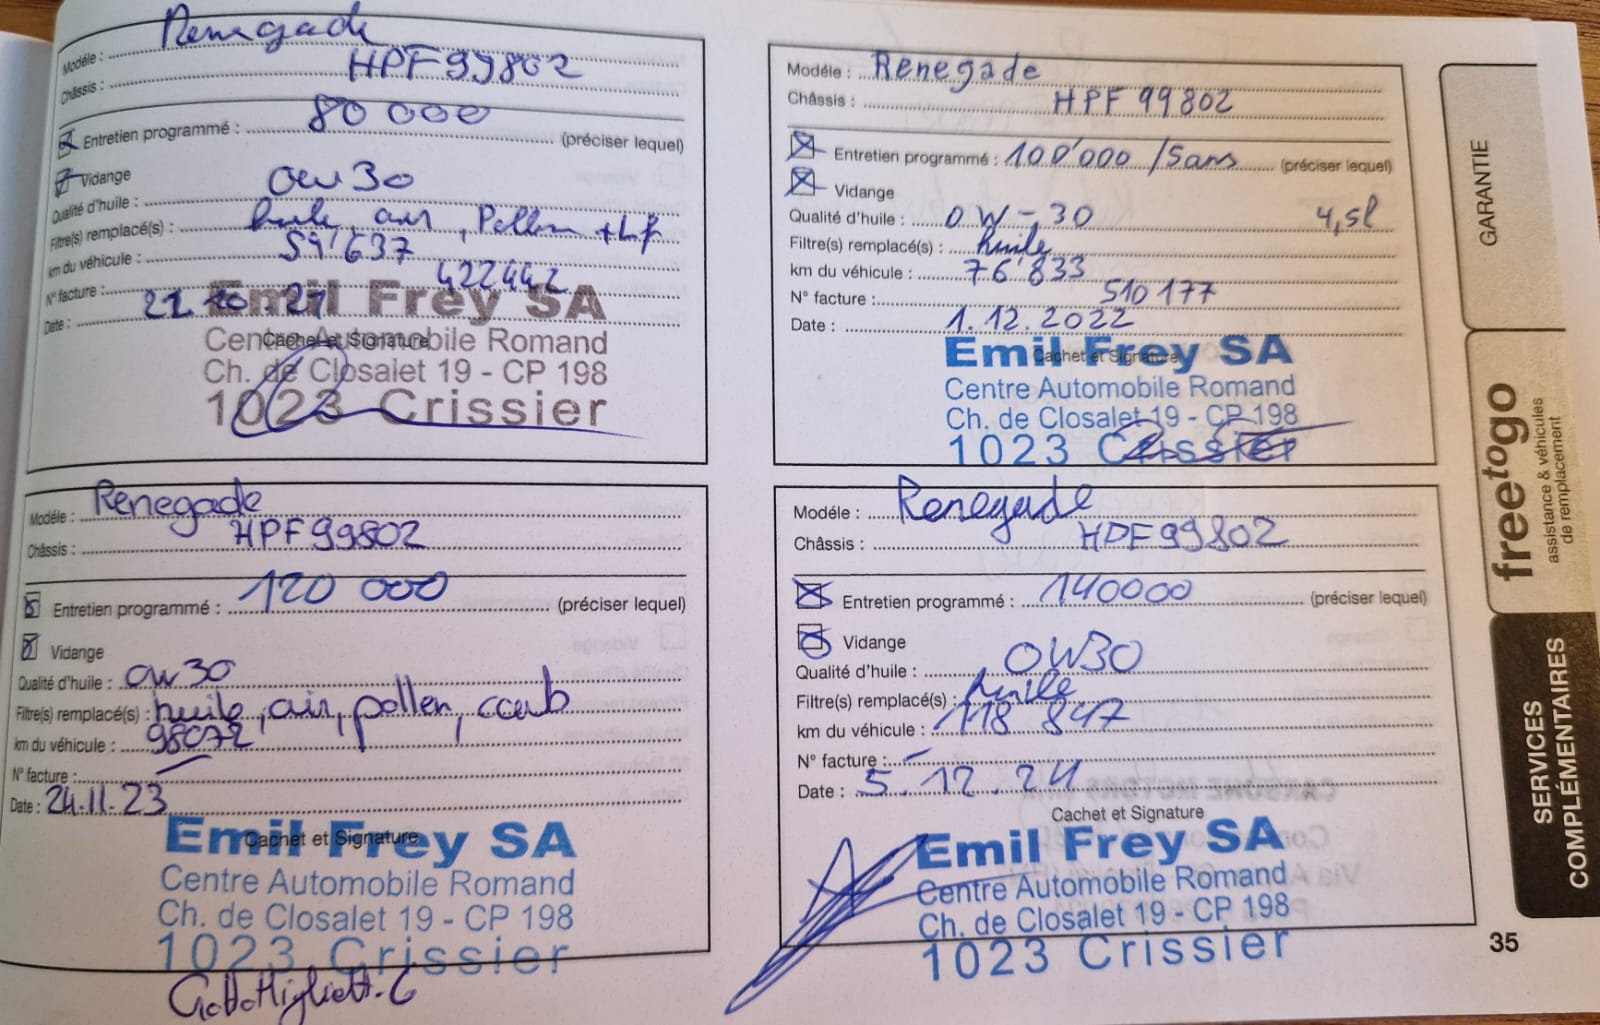 Modèle : Renegade
Châssis : HPF99802
Entretien programmé : 80 000 (préciser lequel)
Vidange
Qualité d'huile : 0w30
Filtre(s) remplacé(s) : huile, air, Pollen +Lf
km du véhicule : 59'637
N° facture : 422442
Date : 21.10.21
Cachet et Signature
Emil Frey SA
Centre Automobile Romand
Ch. de Closalet 19 - CP 198
1023 Crissier
Modèle : Renegade
Châssis : HPF99802
Entretien programmé : 100'000 / 5ans (préciser lequel)
Vidange
Qualité d'huile : 0W-30 4,5l
Filtre(s) remplacé(s) : huile
km du véhicule : 76'833
N° facture : 510177
Date : 1.12.2022
Cachet et Signature
Emil Frey SA
Centre Automobile Romand
Ch. de Closalet 19 - CP 198
1023 Crissier
Modèle : Renegade
Châssis : HPF99802
Entretien programmé : 120 000 (préciser lequel)
Vidange
Qualité d'huile : 0w30
Filtre(s) remplacé(s) : huile, air, pollen, carb
km du véhicule : 98072
N° facture :
Date : 24.11.23
Cachet et Signature
Emil Frey SA
Centre Automobile Romand
Ch. de Closalet 19 - CP 198
1023 Crissier
Modèle : Renegade
Châssis : HPF99802
Entretien programmé : 140000 (préciser lequel)
Vidange
Qualité d'huile : 0W30
Filtre(s) remplacé(s) : huile
km du véhicule : 118 847
N° facture :
Date : 5.12.24
Cachet et Signature
Emil Frey SA
Centre Automobile Romand
Ch. de Closalet 19 - CP 198
1023 Crissier
GARANTIE
freetogo
assistance & véhicules
de remplacement
SERVICES
COMPLÉMENTAIRES
35